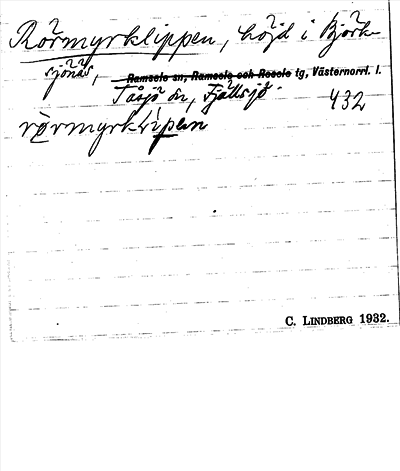 Rörmyrklippen, höjd i Björk-
sjönäs, Ramsele sn, Ramsele och Resele tg, Västernorrl. l.
Tåsjö sn, Fjällsjö 432
rörmyrklipen
C. LINDBERG 1932.